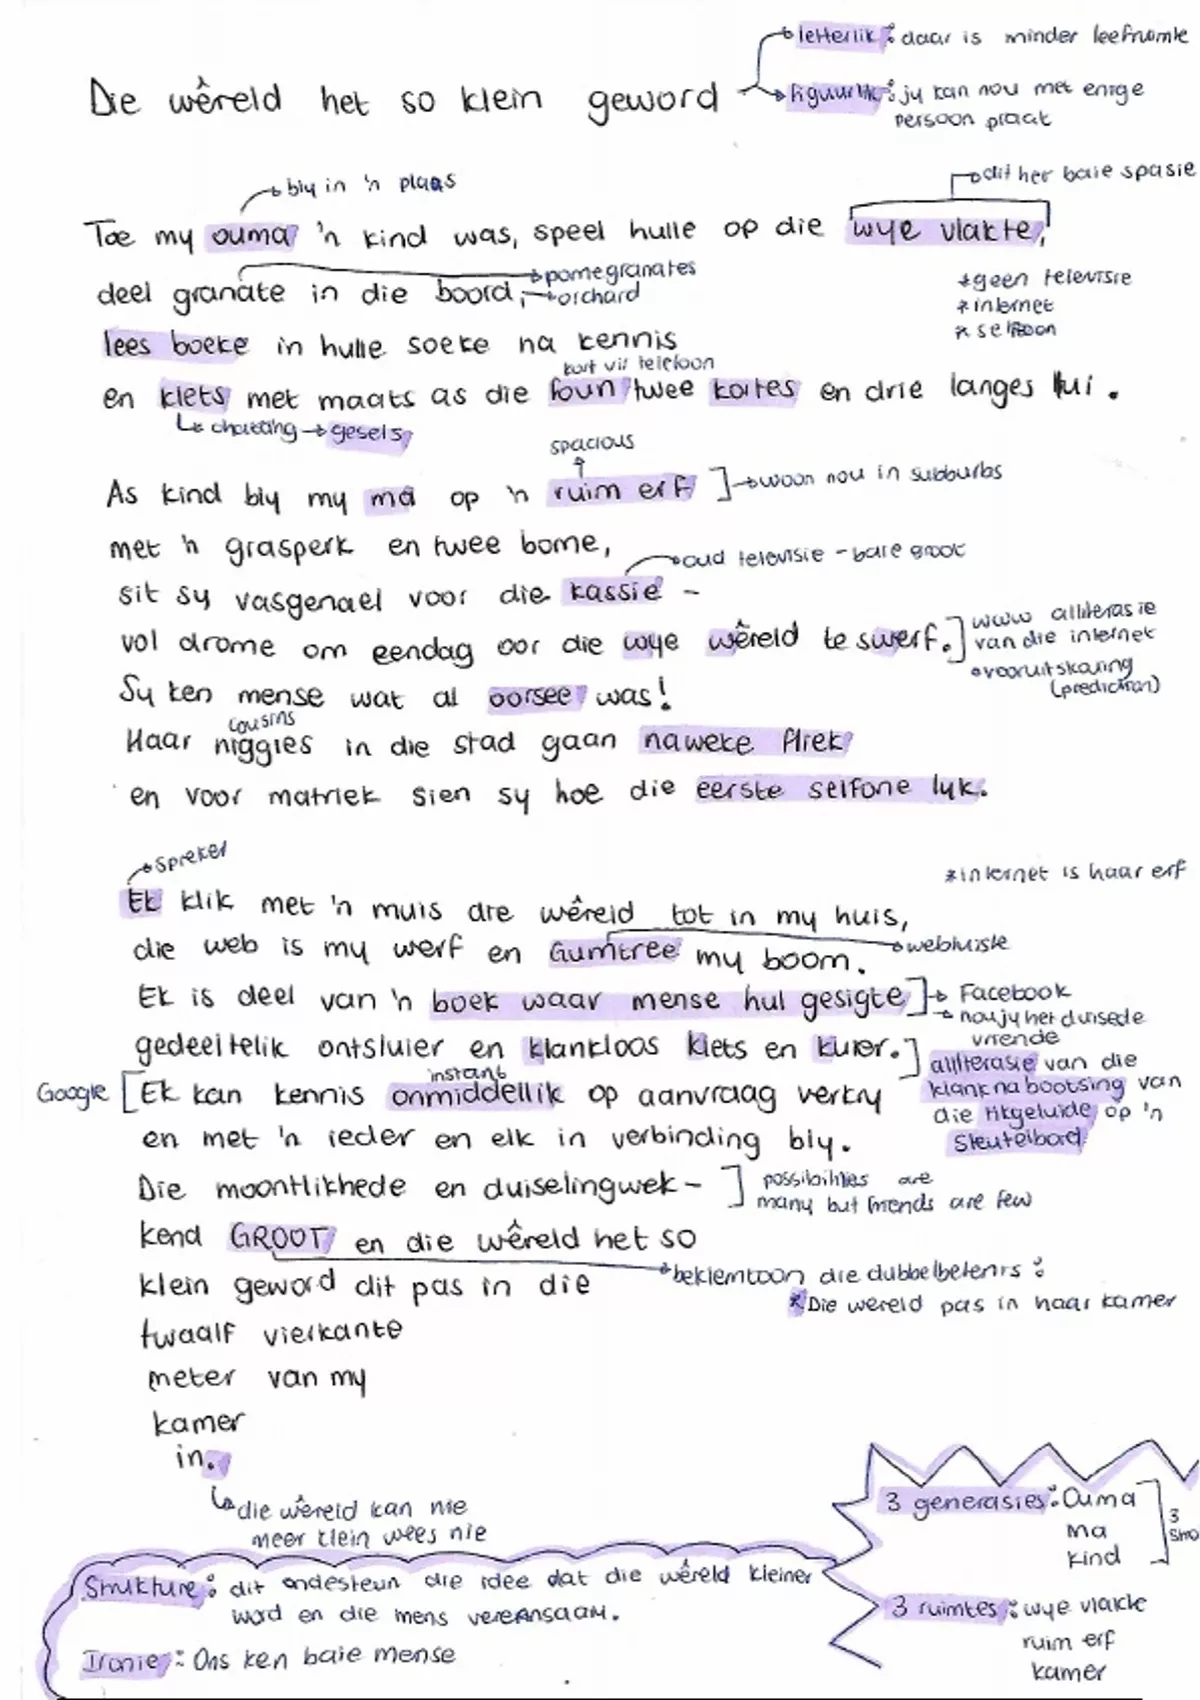 letterlik: daar is minder leefruimte
Die wêreld het so klein geword
figuurlik: jy kan nou met enige
persoon praat
bly in 'n plaas
dit het baie spasie
Toe my ouma 'n kind was, speel hulle op die wye vlakte,
pomegranates
deel granate in die boord, orchard
*geen televisie
*internet
*selfoon
lees boeke in hulle soeke na kennis
kort vir telefoon
en klets met maats as die foun twee kortes en drie langes lui.
chatting → gesels
spacious
As kind bly my ma op 'n ruim erf woon nou in subburbs
met 'n grasperk en twee bome,
oud televisie - baie groot
sit sy vasgenael voor die kassie -
vol drome om eendag oor die wye wêreld te swerf.
www alliterasie
van die internet
vooruitskouing
(prediction)
Sy ken mense wat al oorsee was!
cousins
Haar niggies in die stad gaan naweke fliek
en voor matriek sien sy hoe die eerste selfone lyk.
spreker
*internet is haar erf
Ek klik met 'n muis die wêreld tot in my huis,
die web is my werf en Gumtree my boom.
webtuiste
Ek is deel van 'n boek waar mense hul gesigte
Facebook
nou jy het duisede
vriende
gedeeltelik ontsluier en klankloos klets en kuier.
alliterasie van die
klanknabootsing van
die tikgeluide op 'n
sleutelbord
instant
Google [Ek kan kennis onmiddellik op aanvraag verkry
en met 'n ieder en elk in verbinding bly.
Die moontlikhede en duiselingwek-
possibilities are
many but friends are few
kend GROOT en die wêreld het so
beklemtoon die dubbelbetenis:
klein geword dit pas in die
*Die wereld pas in haar kamer
twaalf vierkante
meter van my
kamer
in.
die wêreld kan nie
meer klein wees nie
3 generasies: Ouma
ma
kind
3
Strukture: dit ondesteun die idee dat die wêreld kleiner
word en die mens vereensaam.
3 ruimtes: wye vlakte
ruim erf
kamer
Ironie: Ons ken baie mense